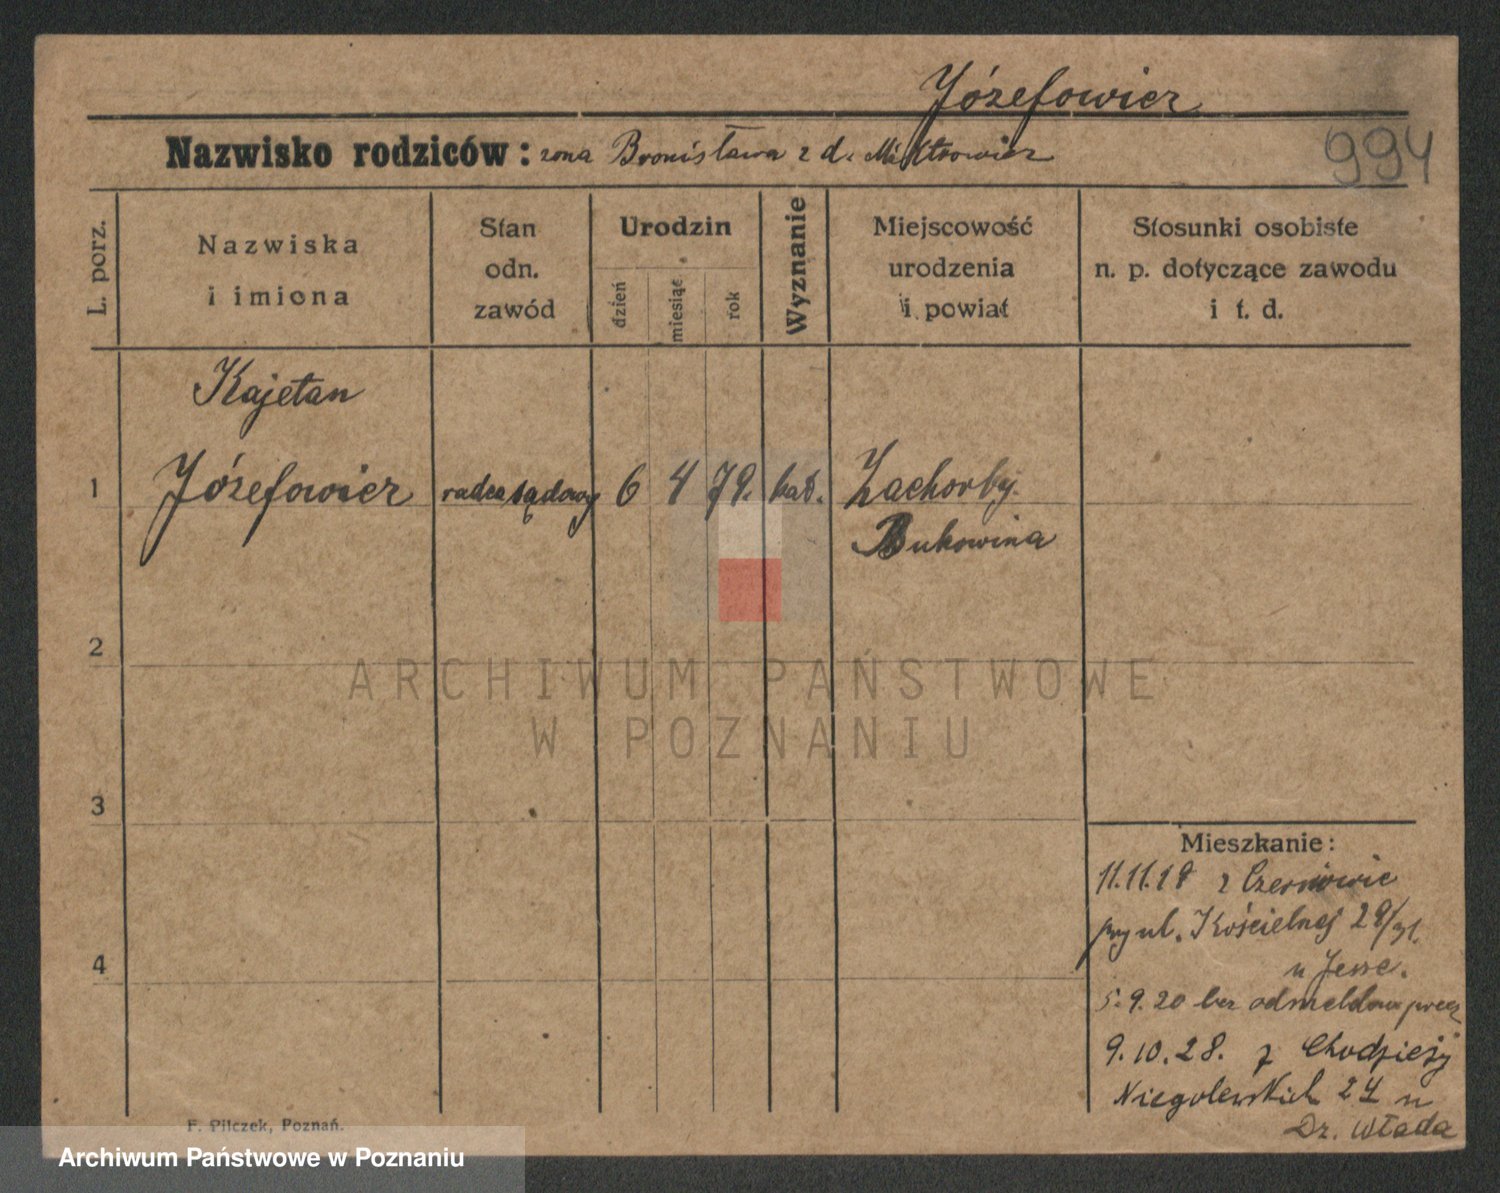 Józefowicz
994
Nazwisko rodziców: żona Bronisława z d.
L. porz.
Nazwiska
i imiona
Stan
odn.
zawód
Urodzin
dzień
miesiąc
rok
Wyznanie
Miejscowość
urodzenia
i powiat
Stosunki osobiste
n. p. dotyczące zawodu
i t. d.
Kajetan
1 Józefowicz radca sądowy 6 4 79. kat. Zachorby.
Bukowina
2
ARCHIWUM PAŃSTWOWE
W POZNANIU
3
4
Mieszkanie:
11.11.19 z Czerniowic
przy ul. Kościelnej 29/31.
u Jesse.
5.9.20 bez odmeldow. precz
9.10.28. z Chodzieży
Niegolewskich 24 u
Dr. Włada
F. Pilczek, Poznań.
Archiwum Państwowe w Poznaniu